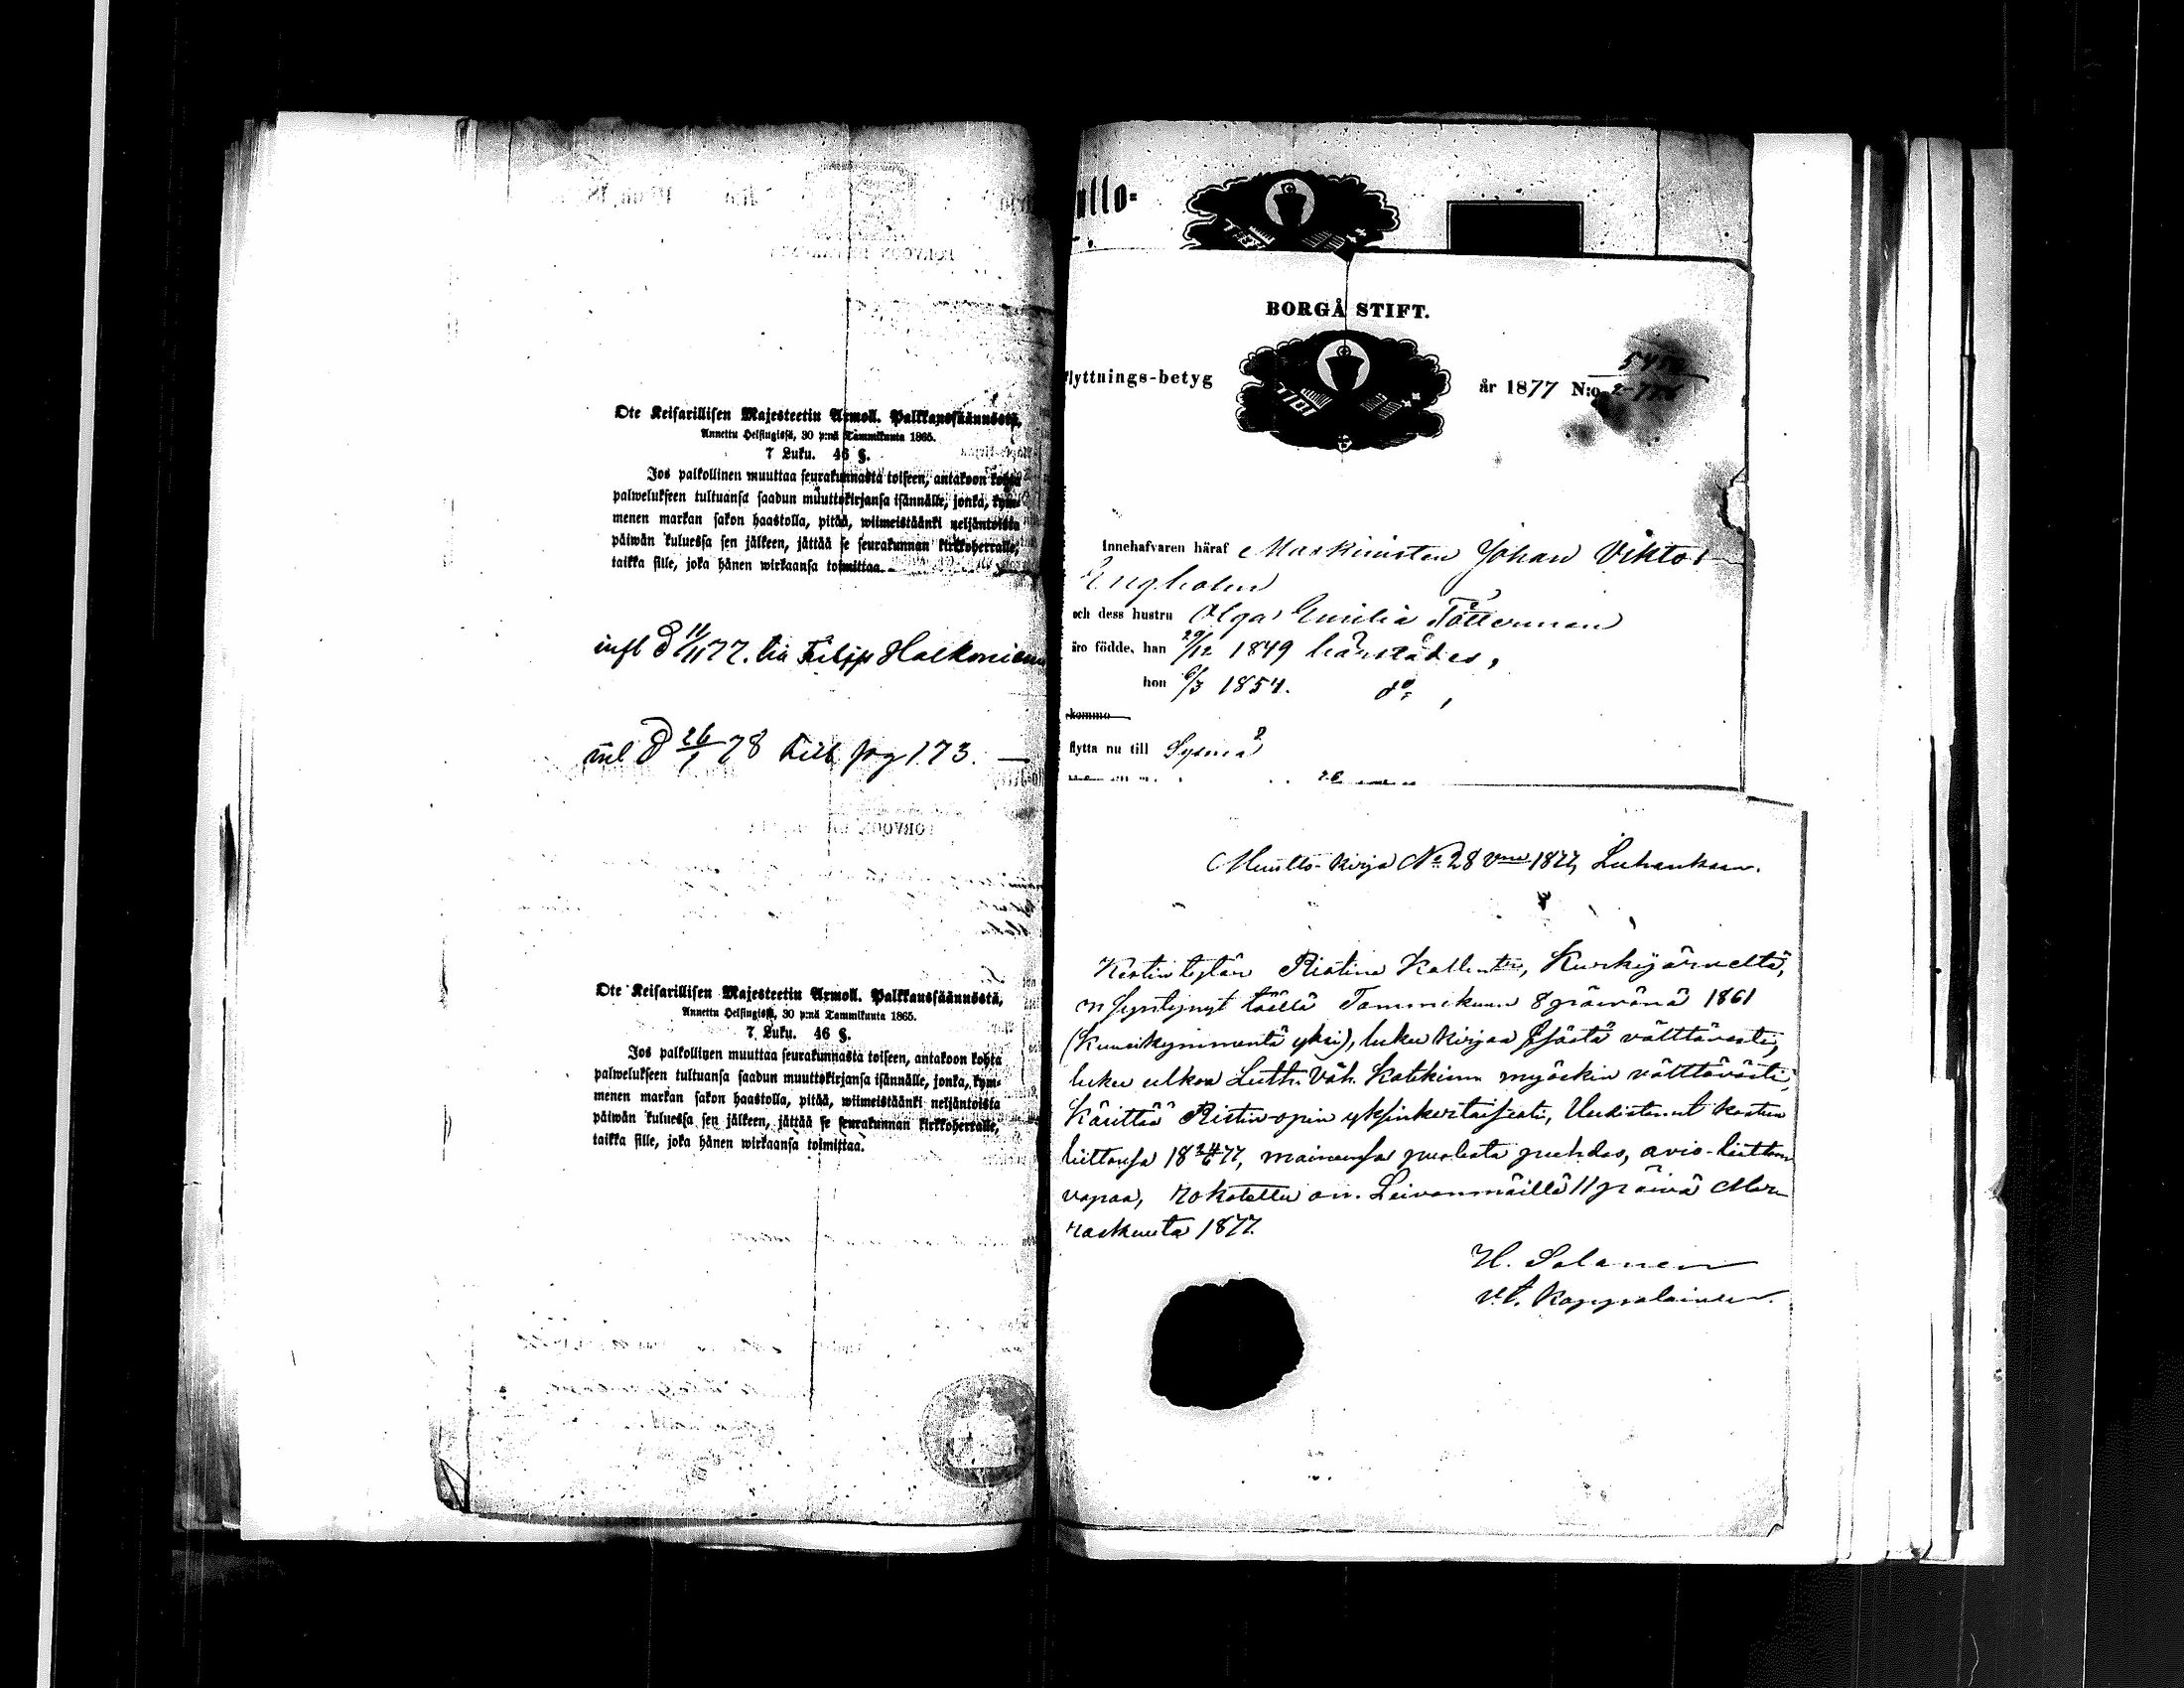 Ote Keisarillisen Majesteetin Armoll. Palkkaussäännöstä,
Annettu Helsingissä, 30 p:nä Tammikuuta 1865.
7 Luku. 46 §.
Jos palkollinen muuttaa seurakunnasta toiseen, antakoon kohta
palwelukseen tultuansa saadun muuttokirjansa isännälle, jonka, kym-
menen markan sakon haastolla, pitää, wiimeistäänki neljäntoista
päiwän kuluessa sen jälkeen, jättää se seurakunnan kirkkoherralle,
taikka sille, joka hänen wirkaansa toimittaa.
infl d 11/11 77. Filipp
d 26/1 78 till pag 173.
Ote Keisarillisen Majesteetin Armoll. Palkkaussäännöstä,
Annettu Helsingissä, 30 p:nä Tammikuuta 1865.
7 Luku. 46 §.
Jos palkollinen muuttaa seurakunnasta toiseen, antakoon kohta
palwelukseen tultuansa saadun muuttokirjansa isännälle, jonka, kym-
menen markan sakon haastolla, pitää, wiimeistäänki neljäntoista
päiwän kuluessa sen jälkeen, jättää se seurakunnan kirkkoherralle,
taikka sille, joka hänen wirkaansa toimittaa.
utto-
BORGÅ STIFT.
flyttnings-betyg
år 1877 N:o
Innehafvaren häraf Maskinisten Johan Viktor
Engholm
och dess hustru Olga Emilia Tötterman
äro födde, han 29/12 1849 härstädes,
hon 6/3 1854. do,
komme
flytta nu till Sysmä
Muutto-kirja No 28 1877, Luhankaan.
Ristina Kallentr, Kurkijärveltä,
on syntynyt täällä Tammikuun 8 päivänä 1861
(Kuusikymmentä yksi), lukee kirjaa sisästä välttävästi,
lukee ulkoa Luth. Väh. Katekism myöskin välttävästi
käsittää Ristin-opin yksinkertaisesti, Uudistanut kasteen
liittonsa 1877, mainensa puolesta puhdas, avio-liittoon
vapaa, rokotettu on. Leivonmäillä 11 päivä Mar-
raskuuta 1877.
H. Salanen
v.t. Kappalainen.